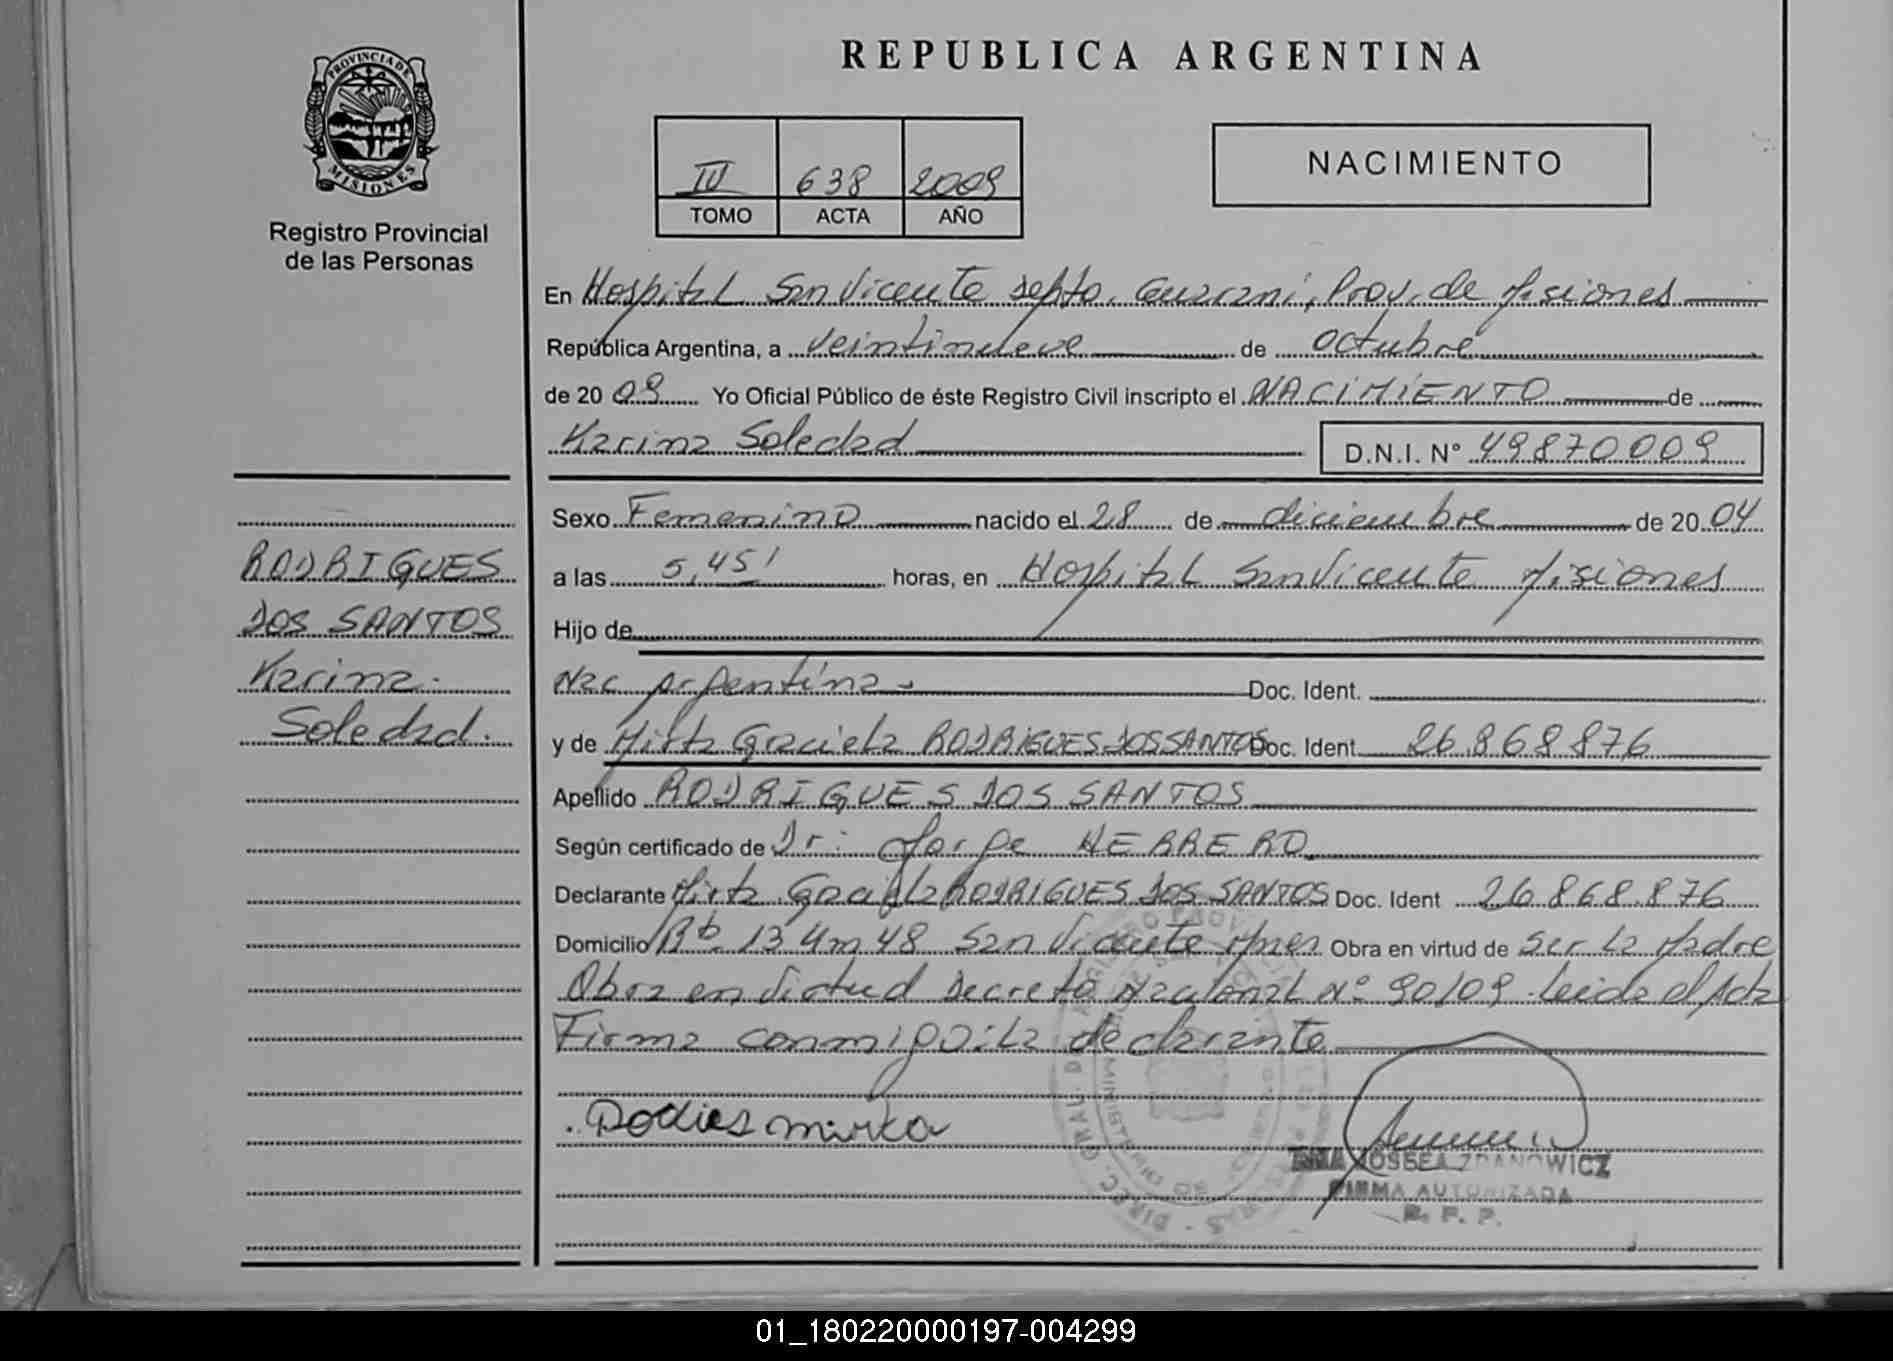 PROVINCIA DE
MISIONES
Registro Provincial
de las Personas
REPUBLICA ARGENTINA
IV 638 2009
TOMO ACTA AÑO
NACIMIENTO
En Hospital San Vicente Depto. Guarani, Prov. de Misiones
República Argentina, a veintinueve de octubre
de 2009 Yo Oficial Público de éste Registro Civil inscripto el NACIMIENTO de
Karina Soledad D.N.I. N° 49870009
Sexo Femenino nacido el 28 de diciembre de 2004
a las 5,45' horas, en Hospital San Vicente Misiones
Hijo de
Nac Argentina.- Doc. Ident.
y de Mirta Graciela RODRIGUES DOS SANTOS Doc. Ident. 26.868.876
Apellido RODRIGUES DOS SANTOS
Según certificado de Dr: Jorge HERRERO
Declarante Mirta Graciela RODRIGUES DOS SANTOS Doc. Ident 26.868.876
Domicilio 13 Km 48 San Vicente Mnes Obra en virtud de Ser La Madre
Obra en Virtud Decreto Nacional N° 90/09. Leida el Acta
Firma conmigo: La declarante
RODRIGUES
DOS SANTOS
Karina.
Soledad.
mirta
ZDANOWICZ
FIRMA AUTORIZADA
R. P. P.
01_180220000197-004299